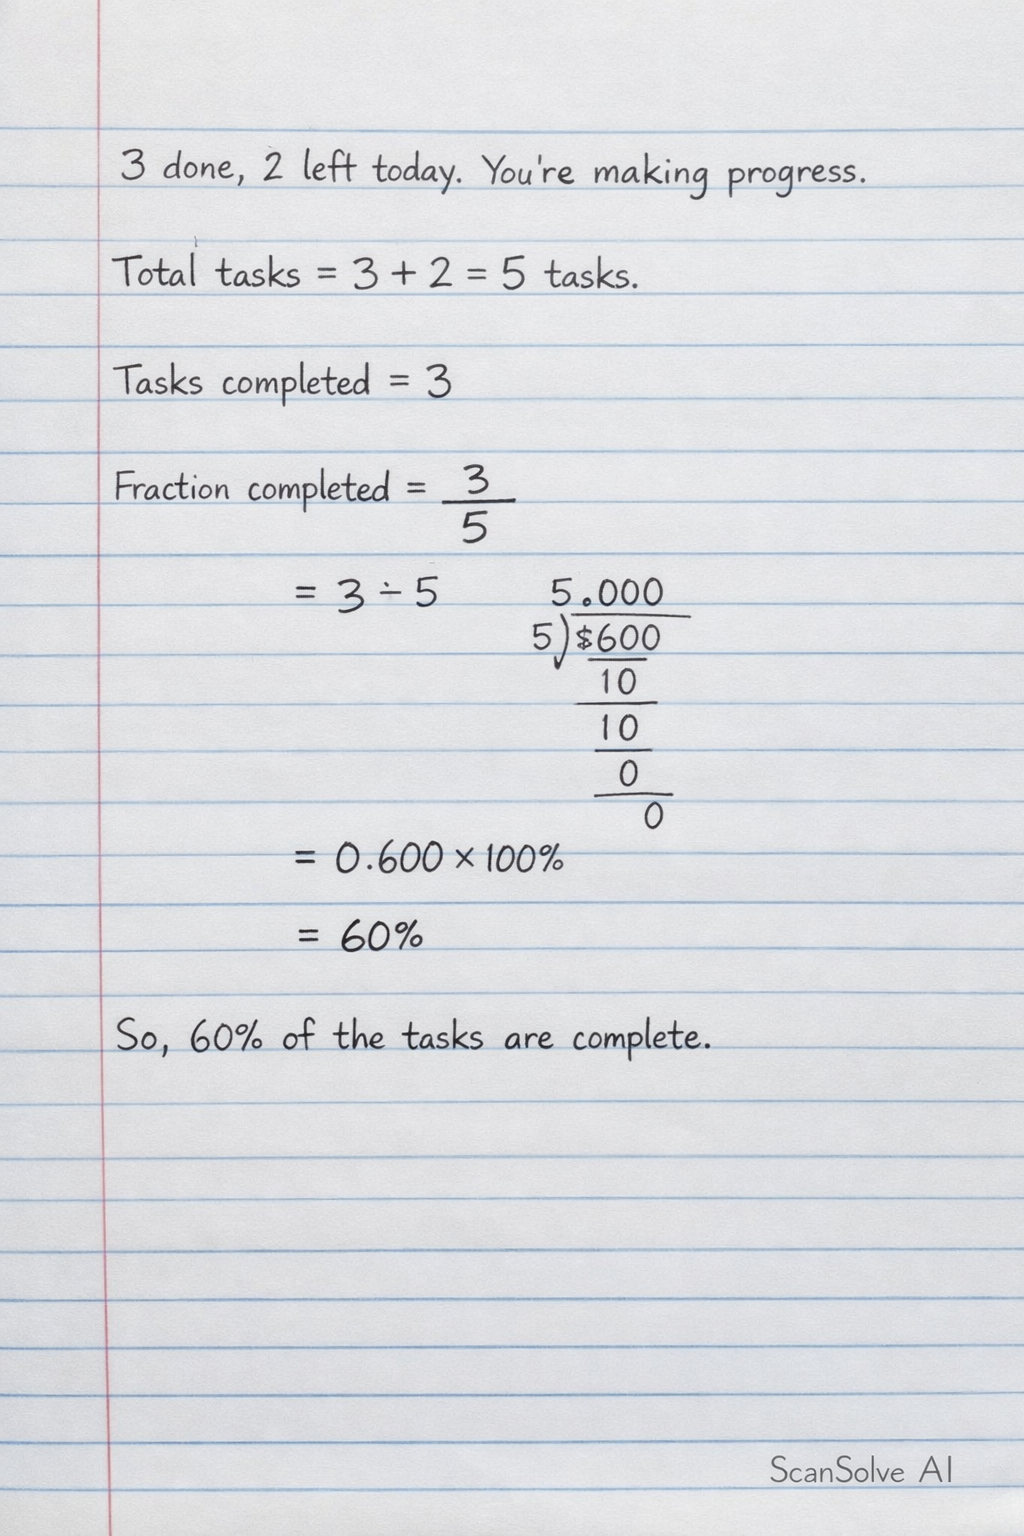 3 done, 2 left today. You're making progress.
Total tasks = 3 + 2 = 5 tasks.
Tasks completed = 3
Fraction completed = 3
5
= 3 ÷ 5
5.000
5)$600
10
10
0
0
= 0.600 × 100%
= 60%
So, 60% of the tasks are complete.
ScanSolve AI